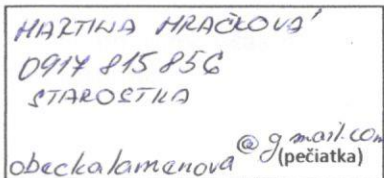 MARTINA MRAČKOVÁ
0917 815 856
STAROSTKA
obeckalamenova@gmail.com
(pečiatka)